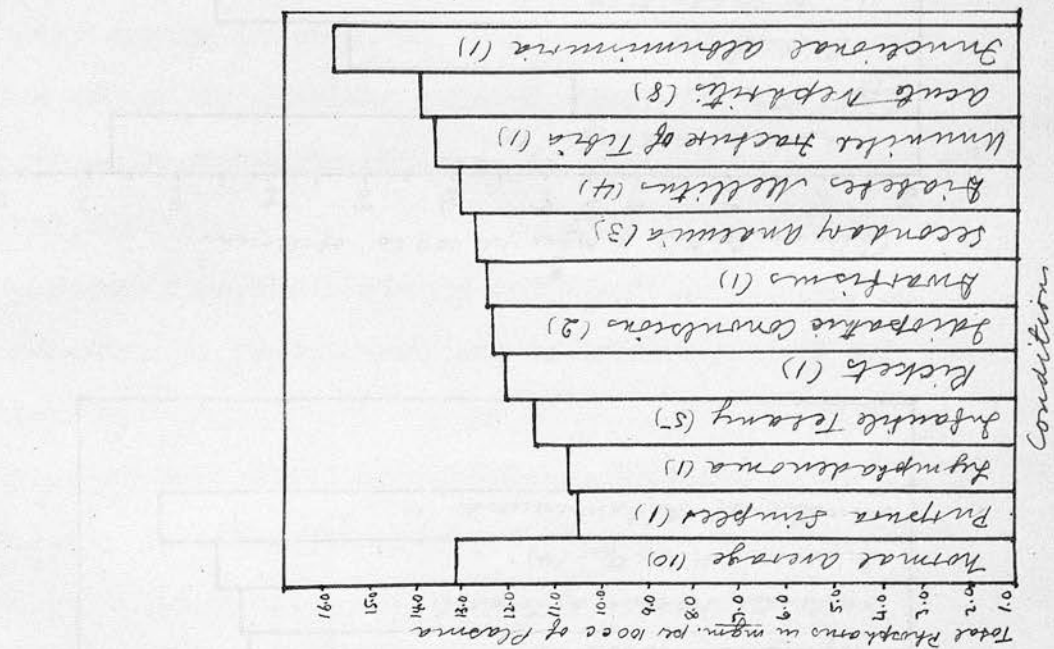 Total Phosphorus in mgm. per 100 cc of Plasma
1.0 2.0 3.0 4.0 5.0 6.0 7.0 8.0 9.0 10.0 11.0 12.0 13.0 14.0 15.0 16.0
Normal average (10)
Purpura Simplex (1)
Lymphadenoma (1)
Infantile Tetany (5)
Rickets (1)
Idiopathic Convulsions (2)
Dwarfism (1)
Secondary Anaemia (3)
Diabetes Mellitus (4)
Ununited fracture of Tibia (1)
Acute Nephritis (8)
Functional albuminuria (1)
Conditions